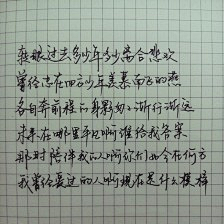 转眼过去多少年多少离合悲欢
曾经志在四方少年羡慕南飞的燕
各自奔前程的身影匆匆渐行渐远
未来在哪里平凡啊谁给我答案
那时陪伴我的人啊你们如今在何方
我曾经爱过的人啊现在是什么模样